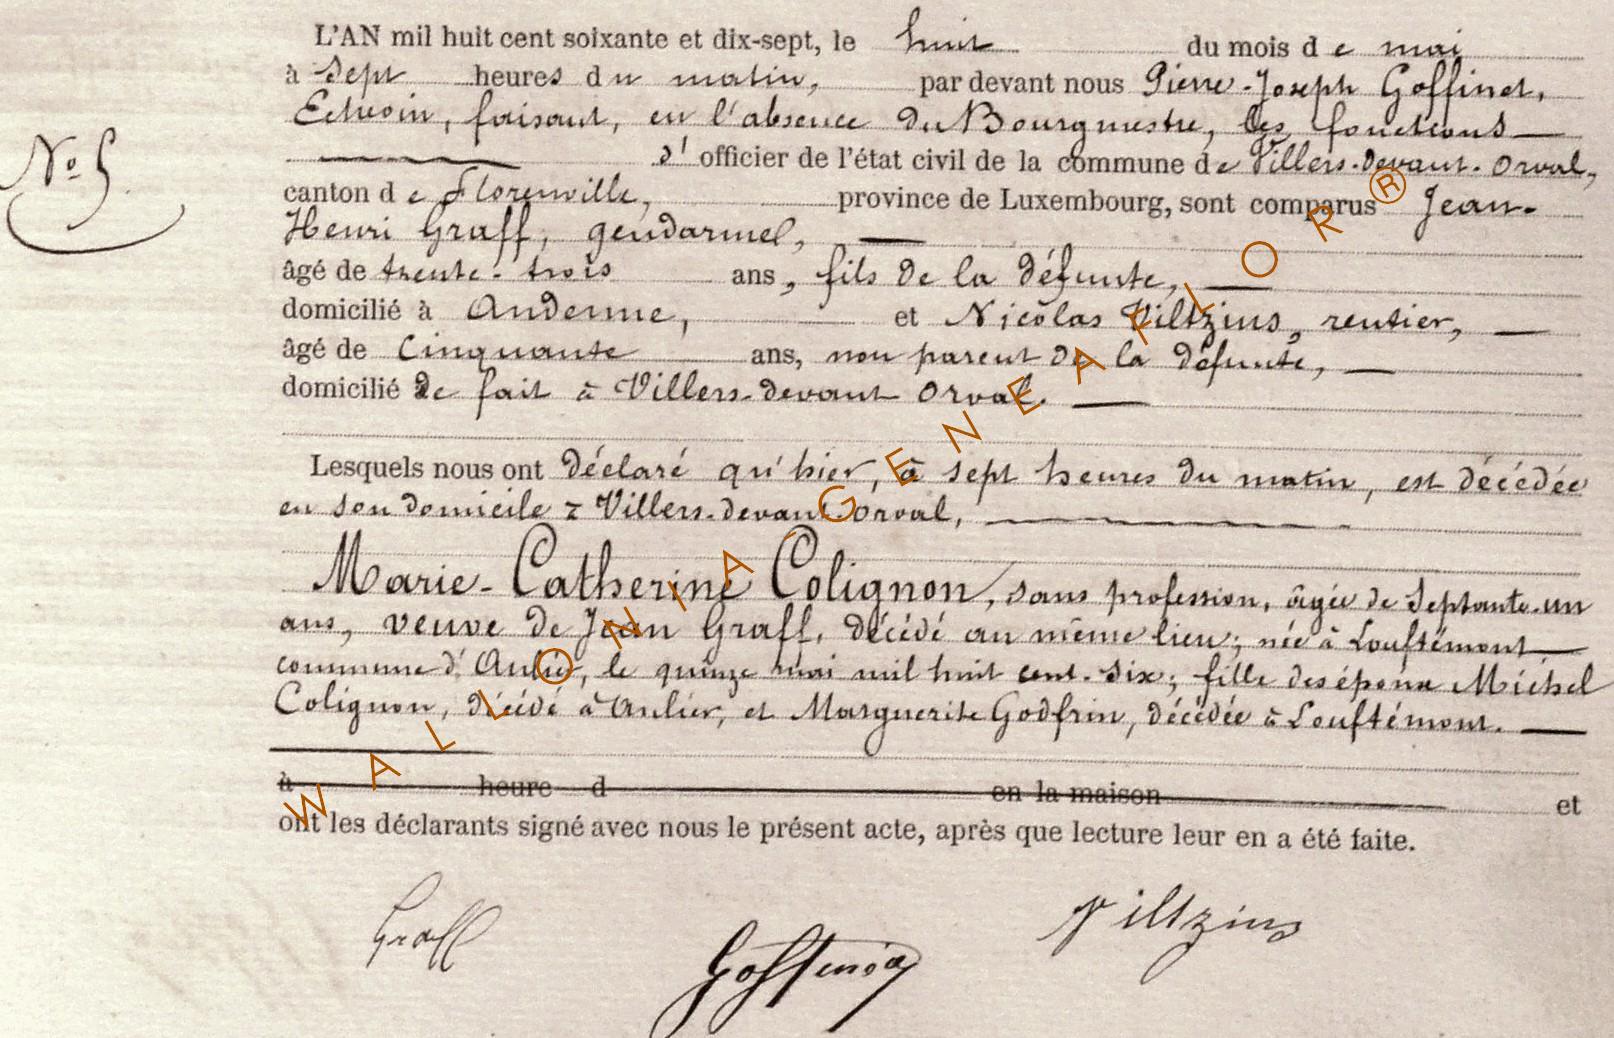 L'AN mil huit cent soixante et dix-sept, le huit du mois de mai
à sept heures du matin, par devant nous Pierre-Joseph Goffinet,
Echevin, faisant, en l'absence du Bourgmestre, les fonctions
N° 5
d'officier de l'état civil de la commune de Villers-devant-Orval,
canton de Florenville, province de Luxembourg, sont comparus Jean-
Henri Graff, gendarme,
âgé de trente-trois ans, fils de la défunte,
domicilié à Andenne, et Nicolas Viltzius, rentier,
âgé de cinquante ans, non parent de la défunte,
domicilié de fait à Villers-devant Orval.
Lesquels nous ont déclaré qu'hier, à sept heures du matin, est décédée
en son domicile à Villers-devant-Orval,
Marie-Catherine Colignon, sans profession, âgée de septante-un
ans, veuve de Jean Graff, décédé au même lieu; née à Louftémont
commune d'Anlier, le quinze mai mil huit cent-six; fille des époux Michel
Colignon, décédé à Anlier, et Marguerite Godfrin, décédée à Louftémont.
à heure d en la maison et
ont les déclarants signé avec nous le présent acte, après que lecture leur en a été faite.
Graff Goffinet Viltzius
WALLONIA-GENEAFLOR®